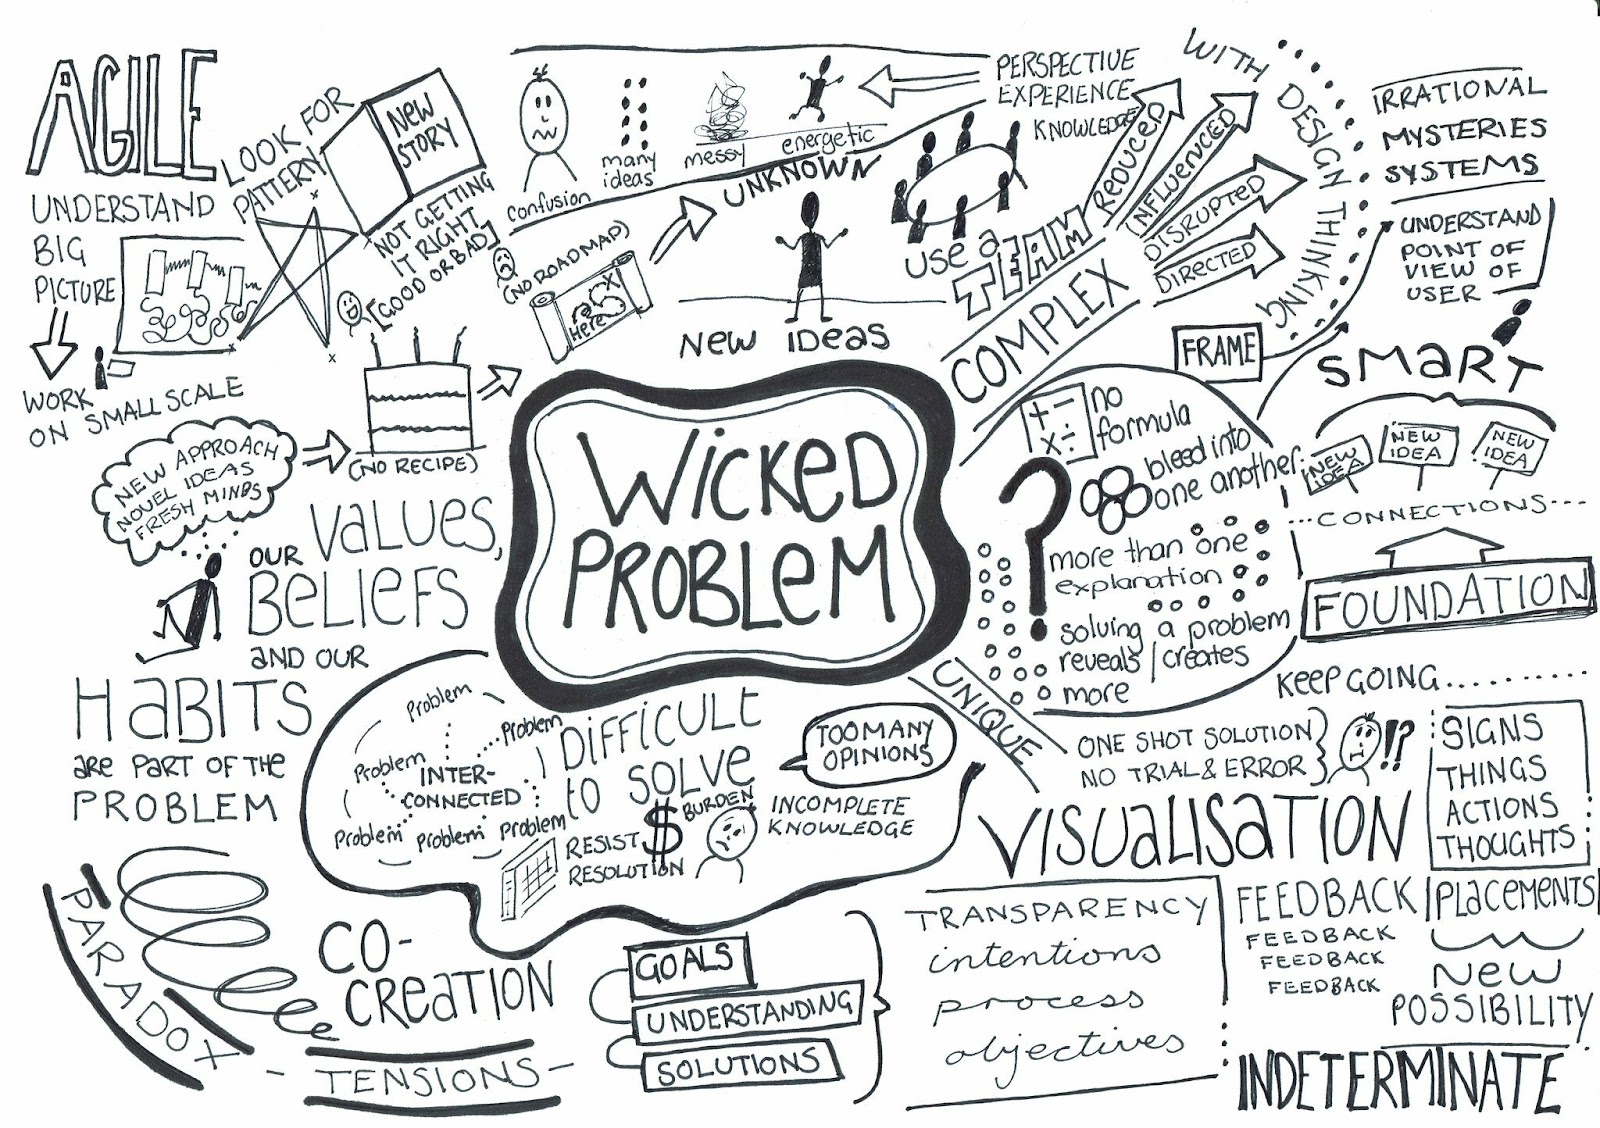 AGILE
UNDERSTAND
BIG
PICTURE
WORK
ON SMALL SCALE
LOOK FOR
PATTERN
NEW
STORY
NOT GETTING
IT RIGHT
[GOOD OR BAD]
confusion
many
ideas
messy
energetic
PERSPECTIVE
EXPERIENCE
KNOWLEDGE
UNKNOWN
(NO ROADMAP)
X
Here
NEW IDEAS
USE A
TEAM
COMPLEX
REDUCED
INFLUENCED
DISRUPTED
DIRECTED
WITH DESIGN THINKING
IRRATIONAL
MYSTERIES
SYSTEMS
UNDERSTAND
POINT OF
VIEW OF
USER
FRAME
SMART
NEW
IDEA
NEW
IDEA
NEW
IDEA
...CONNECTIONS...
FOUNDATION
NEW APPROACH
NOVEL IDEAS
FRESH MINDS
(NO RECIPE)
WICKED
PROBLEM
+ -
x ÷
no
formula
bleed into
one another
?
more than one
explanation
solving a problem
reveals/creates
more
OUR VALUES,
BELIEFS
AND OUR
HABITS
ARE PART OF THE
PROBLEM
Problem
Problem
Problem
INTER-
CONNECTED
Problem
Problem
Problem
DIFFICULT
to SOLVE
RESIST
RESOLUTION
$
BURDEN
TOO MANY
OPINIONS
INCOMPLETE
KNOWLEDGE
UNIQUE
ONE SHOT SOLUTION
NO TRIAL & ERROR
!?
KEEP GOING..........
SIGNS
THINGS
ACTIONS
THOUGHTS
VISUALISATION
PARADOX
CO-
CREATION
- TENSIONS -
GOALS
UNDERSTANDING
SOLUTIONS
TRANSPARENCY
intentions
process
objectives
FEEDBACK
FEEDBACK
FEEDBACK
FEEDBACK
PLACEMENTS
NEW
POSSIBILITY
INDETERMINATE